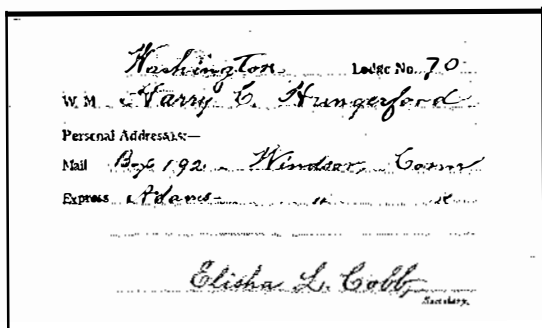 Washington Lodge No. 70
W. M. Harry C. Hungerford
Personal Addresses:—
Mail Box 192 - Windsor, Conn
Express Adams - " "
Elisha L. Cobb
Secretary.